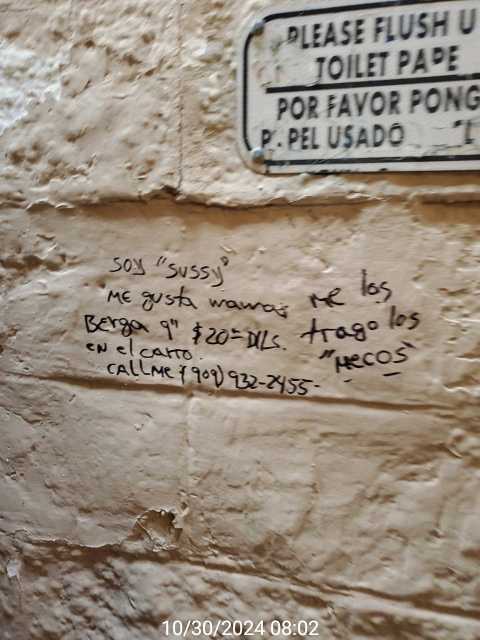 PLEASE FLUSH U
TOILET PAPE
POR FAVOR PONG
P PEL USADO
SOY "SUSSY"
ME gusta mamar
BERGA 9" $20= Dlls.
EN el carro.
CALL ME (909) 932-2455-
ME los
trago los
"MECOS"
10/30/2024 08:02